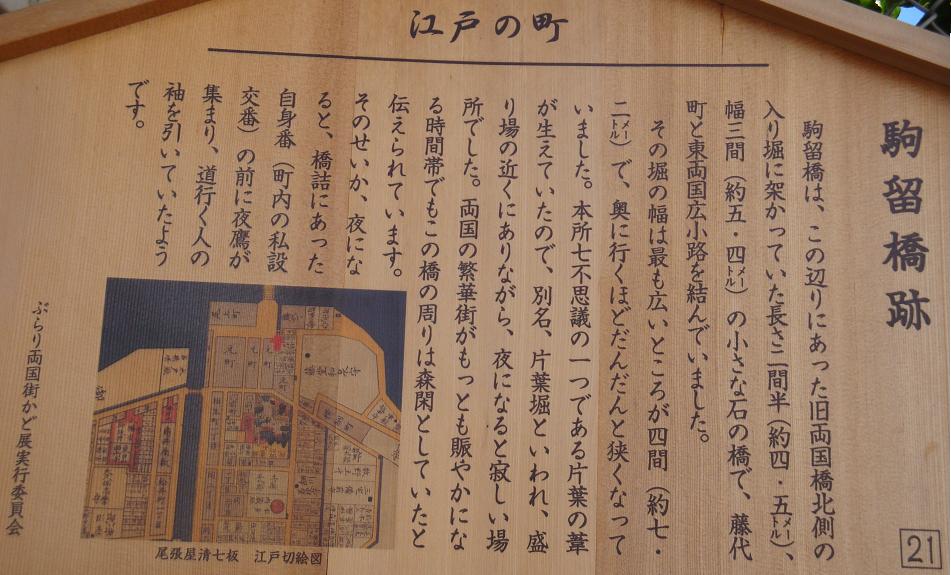 江戸の町
駒留橋跡
駒留橋は、この辺りにあった旧両国橋北側の
入り堀に架かっていた長さ二間半（約四・五㍍）、
幅三間（約五・四㍍）の小さな石の橋で、藤代
町と東両国広小路を結んでいました。
その堀の幅は最も広いところが四間（約七・
二㍍）で、奥に行くほどだんだんと狭くなって
いました。本所七不思議の一つである片葉の葦
が生えていたので、別名、片葉堀といわれ、盛
り場の近くにありながら、夜になると寂しい場
所でした。両国の繁華街がもっとも賑やかにな
る時間帯でもこの橋の周りは森閑としていたと
伝えられています。
そのせいか、夜にな
ると、橋詰にあった
自身番（町内の私設
交番）の前に夜鷹が
集まり、道行く人の
袖を引いていたよう
です。
尾張屋清七板　江戸切絵図
ぶらり両国街かど展実行委員会
21